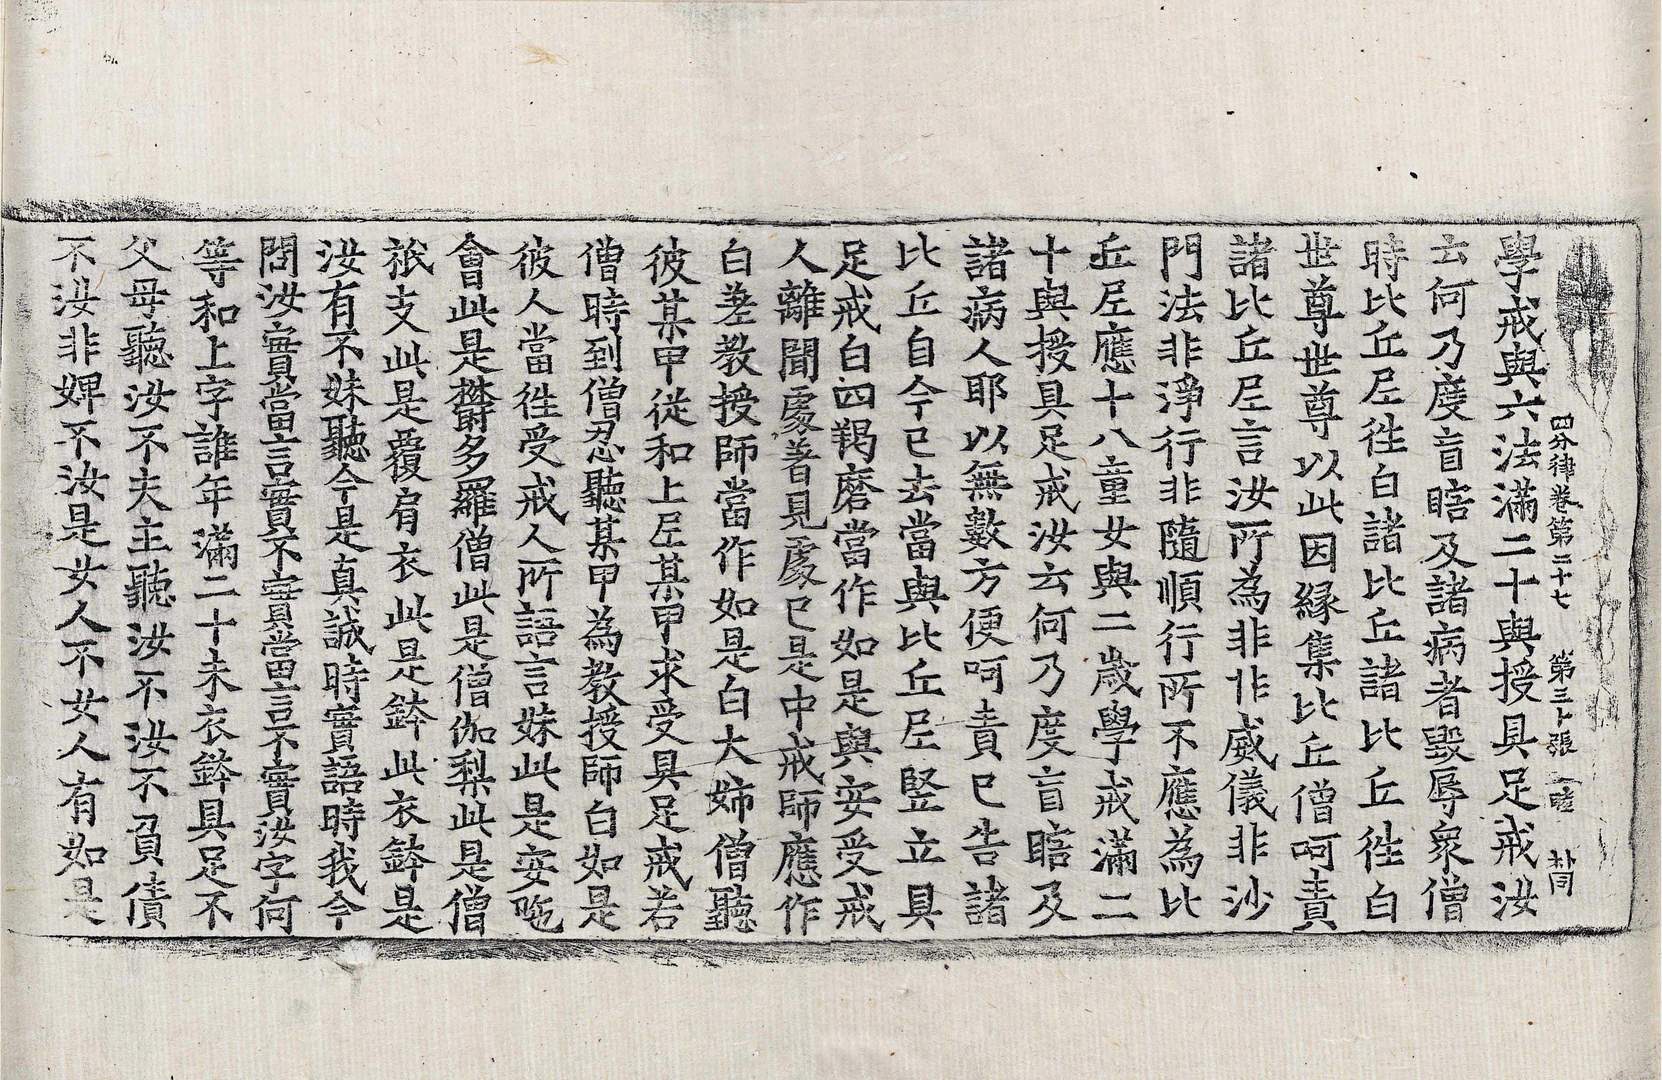 四分律卷第二十七 第三卜張 睦 朴同
學戒與六法滿二十與授具足戒汝
云何乃度盲瞎及諸病者毀辱衆僧
時比丘尼徃白諸比丘諸比丘徃白
世尊世尊以此因緣集比丘僧呵責
諸比丘尼言汝所為非非威儀非沙
門法非淨行非隨順行所不應為比
丘尼應十八童女與二歲學戒滿二
十與授具足戒汝云何乃度盲瞎及
諸病人耶以無數方便呵責已告諸
比丘自今已去當與比丘尼竪立具
足戒白四羯磨當作如是與安受戒
人離聞處著見處已是中戒師應作
白差教授師當作如是白大姊僧聽
彼某甲從和上尼某甲求受具足戒若
僧時到僧忍聽某甲為教授師白如是
彼人當徃受戒人所語言妹此是安陁
會此是欝多羅僧此是僧伽梨此是僧
祇支此是覆肩衣此是鉢此衣鉢是
汝有不妹聽今是真誠時實語時我今
問汝實當言實不實當言不實汝字何
等和上字誰年滿二十未衣鉢具足不
父母聽汝不夫主聽汝不汝不負債
不汝非婢不汝是女人不女人有如是